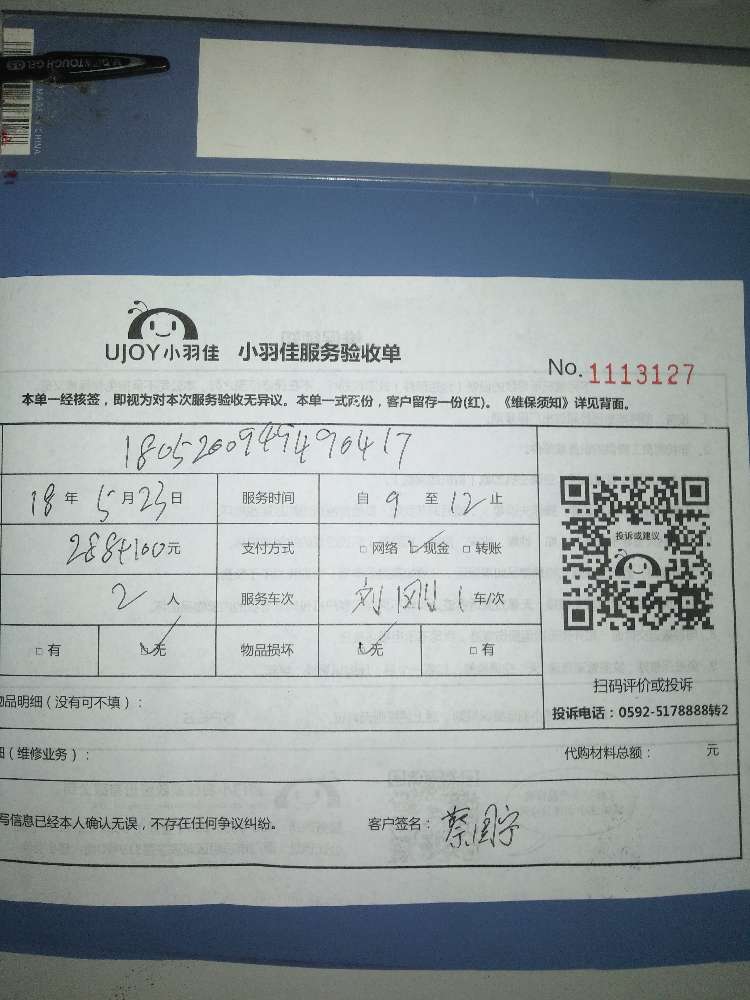 MADE IN CHINA
UJOY小羽佳 小羽佳服务验收单
No. 1113127
本单一经核签，即视为对本次服务验收无异议。本单一式两份，客户留存一份(红)。《维保须知》详见背面。
18052009495490417
18 年 5 月 23 日 服务时间 自 9 至 12 止
288+100元 支付方式 □ 网络 ☑ 现金 □ 转账
2 人 服务车次 刘刚 1 车/次
□ 有 ☑ 无 物品损坏 ☑ 无 □ 有
投诉或建议
扫码评价或投诉
投诉电话：0592-5178888转2
物品明细（没有可不填）：
（维修业务）： 代购材料总额： 元
写信息已经本人确认无误，不存在任何争议纠纷。 客户签名：蔡国宁